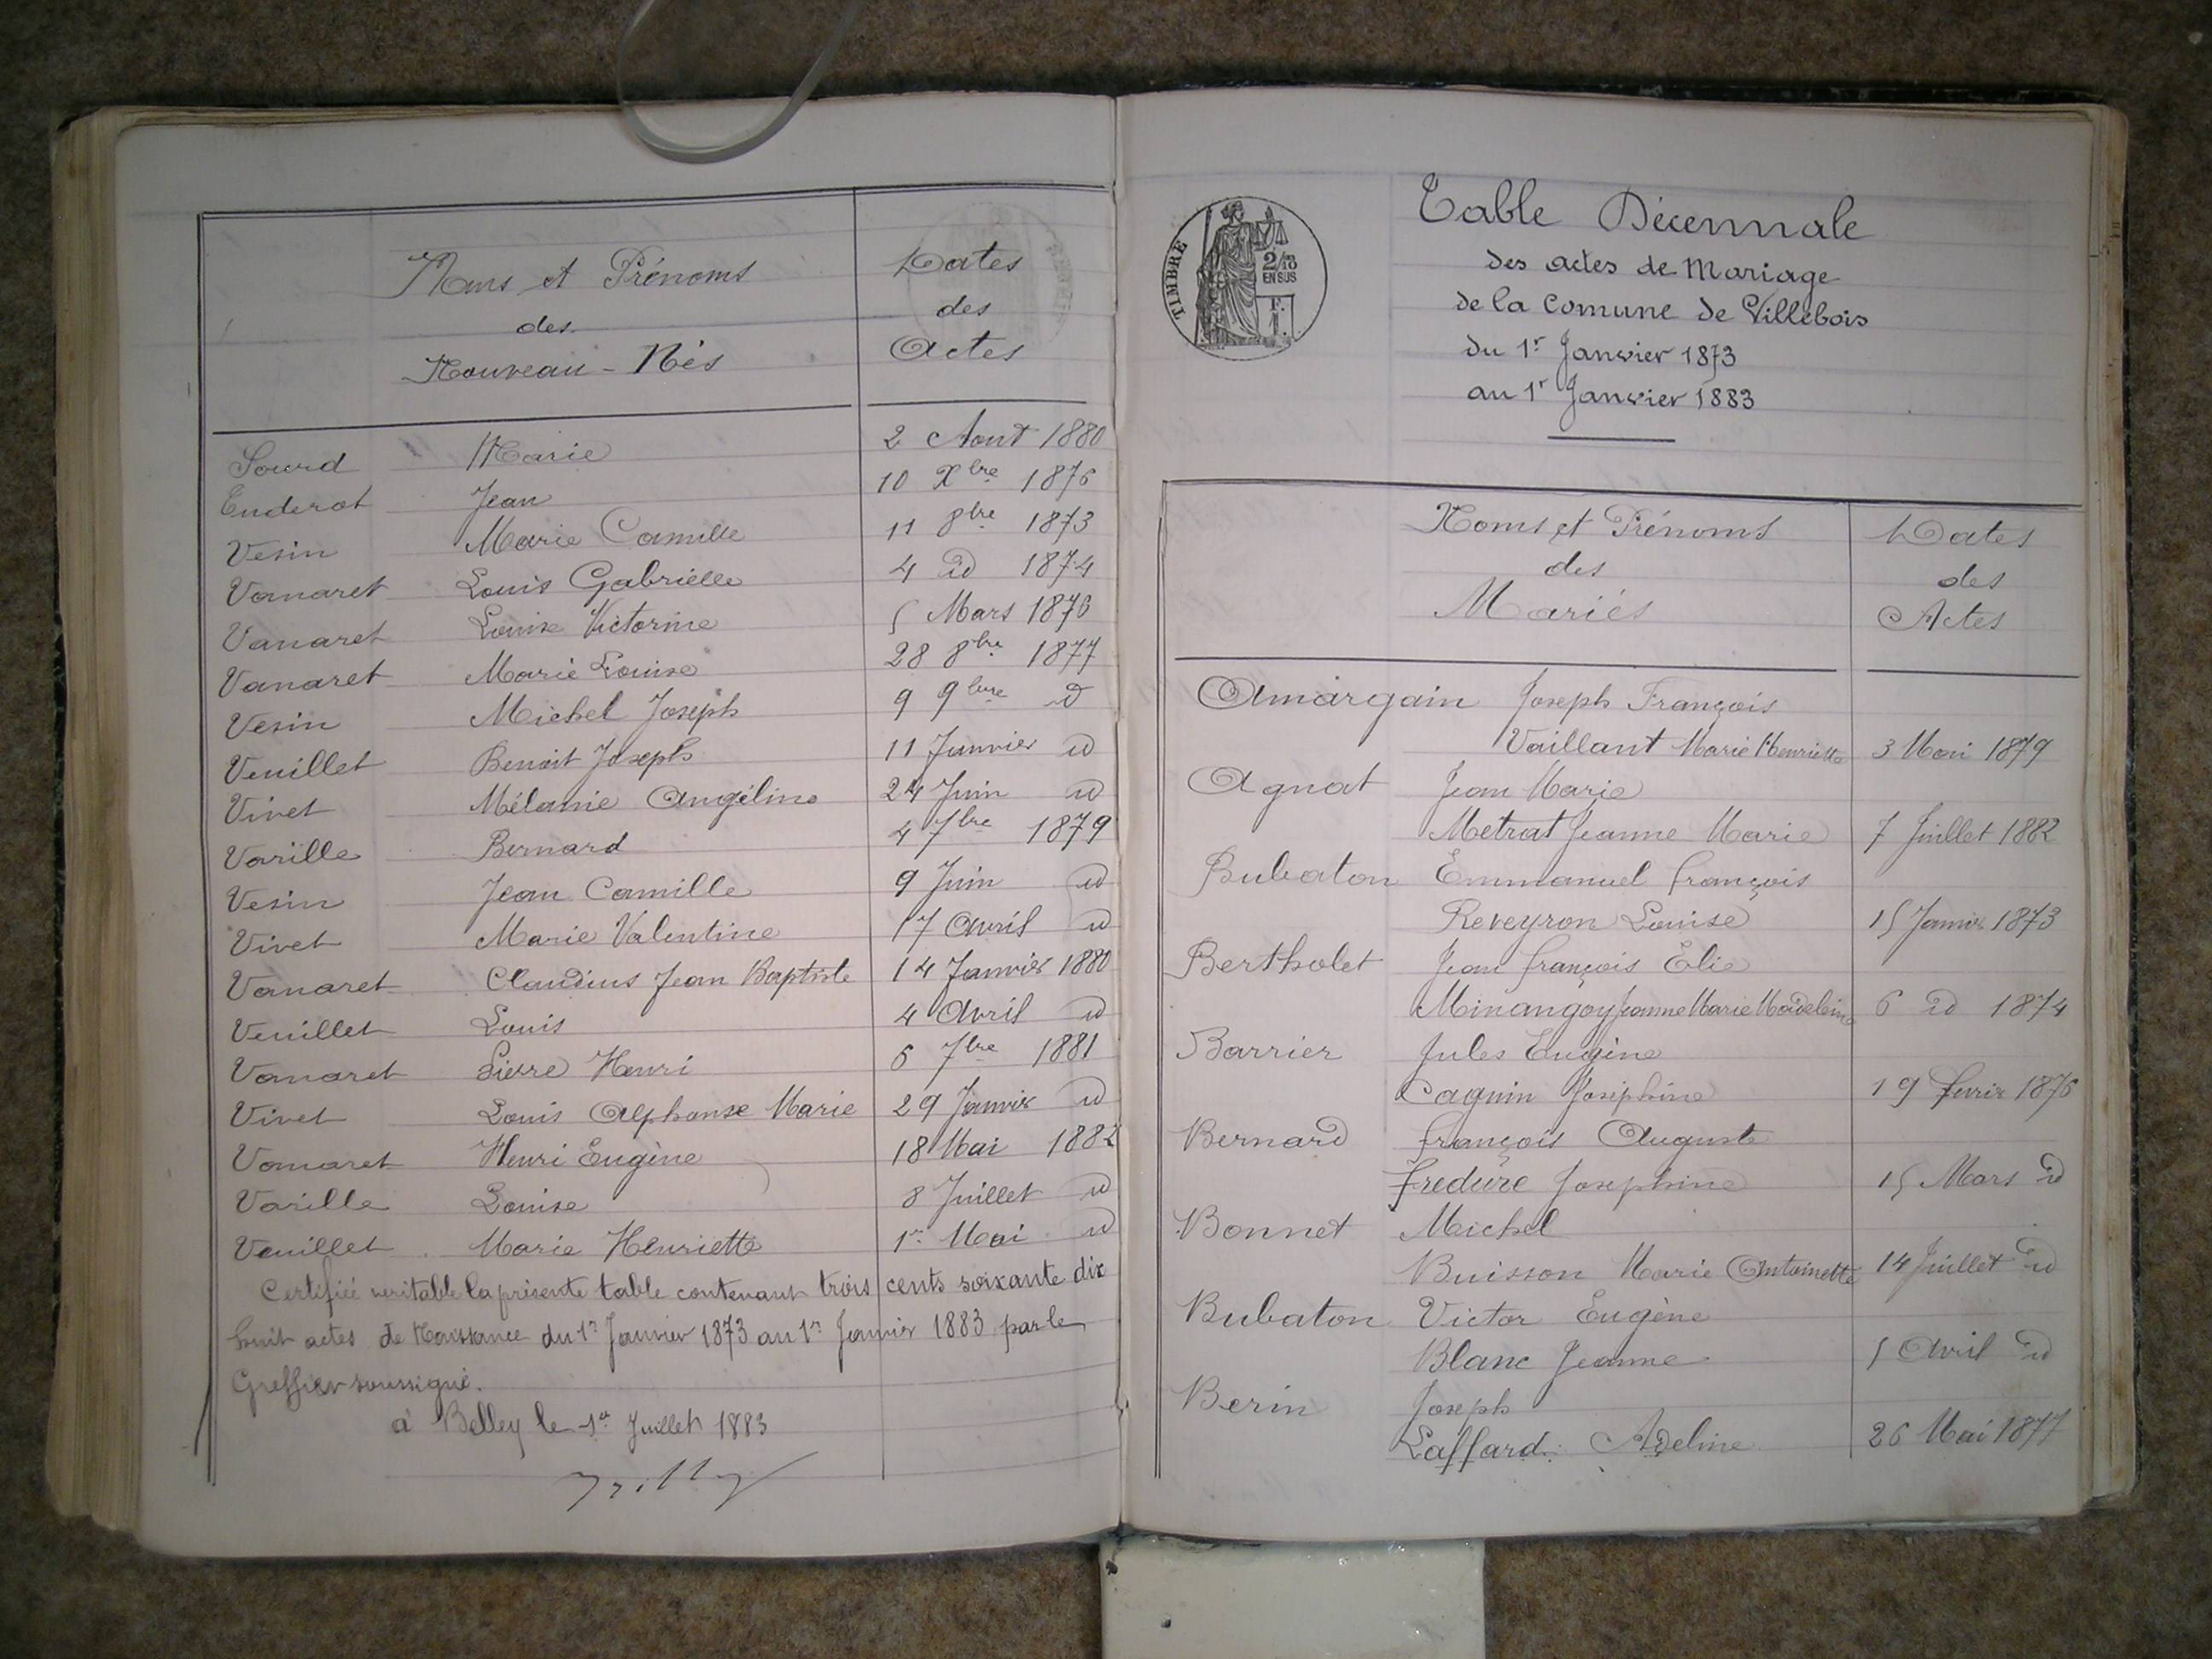 Noms et Prénoms
des
Nouveau-Nés
Dates
des
Actes
Sourd Marie 2 Aout 1880
Enderot Jean 10 Xbre 1876
Vesin Marie Camille 11 8bre 1873
Vanaret Louis Gabrielle 4 id 1874
Vanaret Louise Victorine 5 Mars 1876
Vanaret Marie Louise 28 8bre 1877
Vesin Michel Joseph 9 9bre id
Veuillet Benoit Joseph 11 Janvier id
Vivet Mélanie Angéline 24 Juin id
Varille Bernard 4 7bre 1879
Vesin Jean Camille 9 Juin id
Vivet Marie Valentine 17 Avril id
Vanaret Claudius Jean Baptiste 14 Janvier 1880
Veuillet Louis 4 Avril id
Vanaret Pierre Henri 6 7bre 1881
Vivet Louis Alphonse Marie 29 Janvier id
Vanaret Henri Eugène 18 Mai 1882
Varille Louise 8 Juillet id
Veuillet Marie Henriette 1er Mai id
Certifiée veritable la présente table contenant trois cents soixante dix
huit actes de Naissance du 1er Janvier 1873 au 1er Janvier 1883 par le
Greffier soussigné.
à Belley le 1er Juillet 1883
TIMBRE
2/10
EN SUS
1 F.
Table Décennale
des actes de Mariage
de la Comune de Villebois
du 1r Janvier 1873
au 1r Janvier 1883
Noms et Prénoms
des
Mariés
Dates
des
Actes
Amargain Joseph François
Vaillant Marie Henriette 3 Mai 1879
Agnat Jean Marie
Metrat Jeanne Marie 7 Juillet 1882
Bubaton Emmanuel françois
Reveyron Louise 15 Janvier 1873
Bertholet Jean françois Elie
Minangoy Jeanne Marie Madeleine 6 id 1874
Barrier Jules Eugène
Caguin Joséphine 19 fevrier 1876
Bernard françois Auguste
fredure Josephine 15 Mars id
Bonnet Michel
Buisson Marie Antoinette 14 Juillet id
Bubaton Victor Eugène
Blanc Jeanne 5 Avril id
Berin Joseph
Laffard Adeline 26 Mai 1877